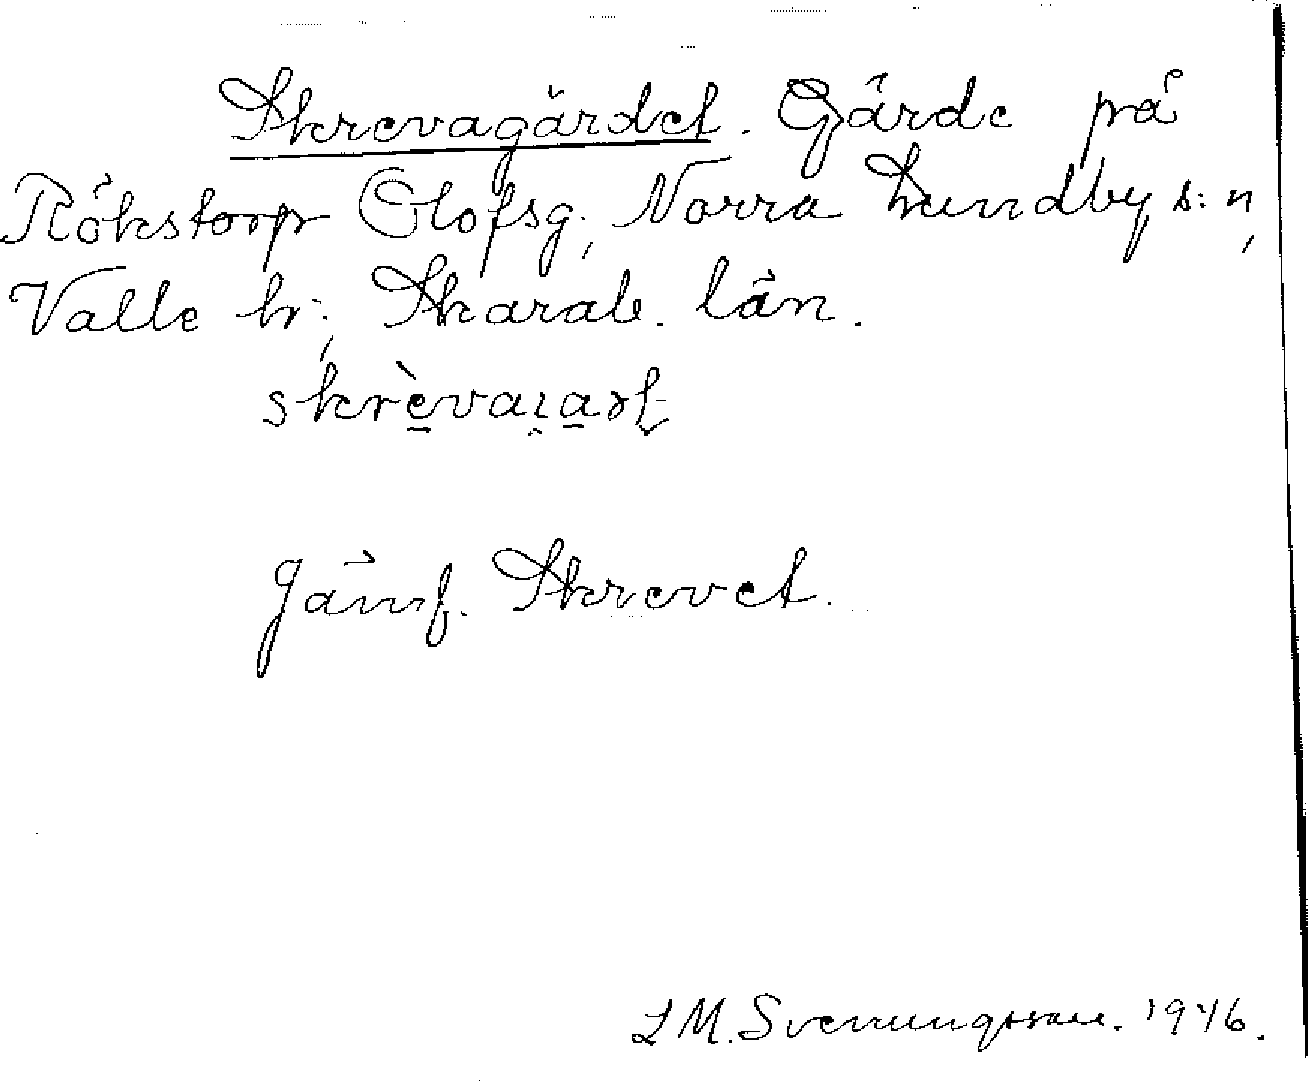 Skrevagärdet. Gärde på
Rökstorp Olofsg., Norra Lundby s:n,
Valle hr., Skarab. län.
skrèvaɹaɖʈ
Jämf. Skrevet.
L M. Svenungsson. 1946.